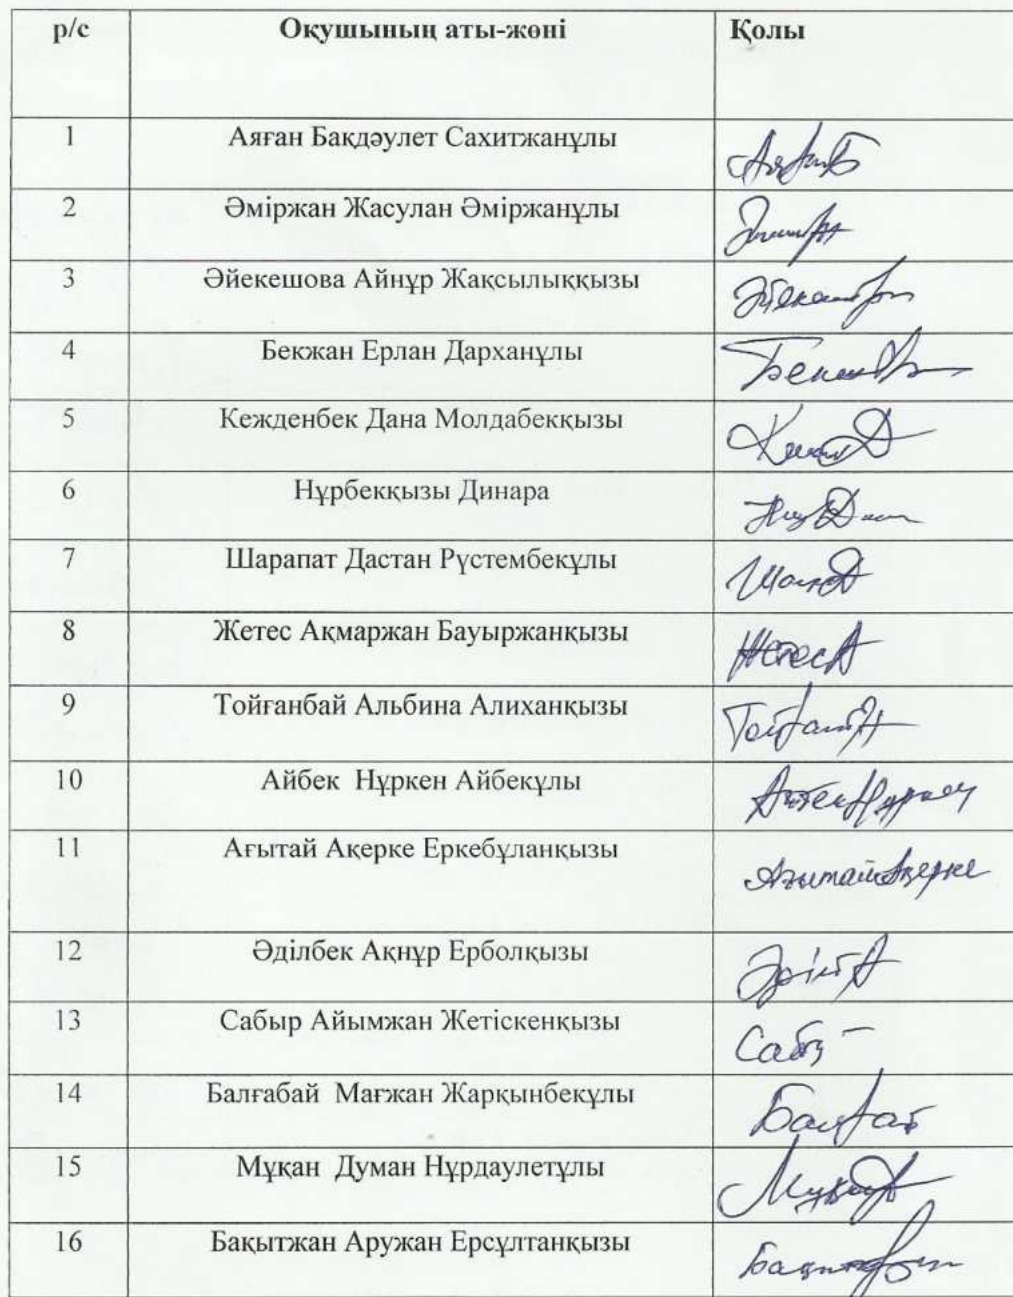 р/с Оқушының аты-жөні Қолы
1 Аяған Бақдәулет Сахитжанұлы
2 Әміржан Жасулан Әміржанұлы
3 Әйекешова Айнұр Жақсылыққызы
4 Бекжан Ерлан Дарханұлы
5 Кежденбек Дана Молдабекқызы
6 Нұрбекқызы Динара
7 Шарапат Дастан Рүстембекұлы
8 Жетес Ақмаржан Бауыржанқызы
9 Тойғанбай Альбина Алиханқызы
10 Айбек Нұркен Айбекұлы
11 Ағытай Ақерке Еркебұланқызы Ағытай Ақерке
12 Әділбек Ақнұр Ерболқызы
13 Сабыр Айымжан Жетіскенқызы
14 Балғабай Мағжан Жарқынбекұлы
15 Мұқан Думан Нұрдаулетұлы
16 Бақытжан Аружан Ерсұлтанқызы